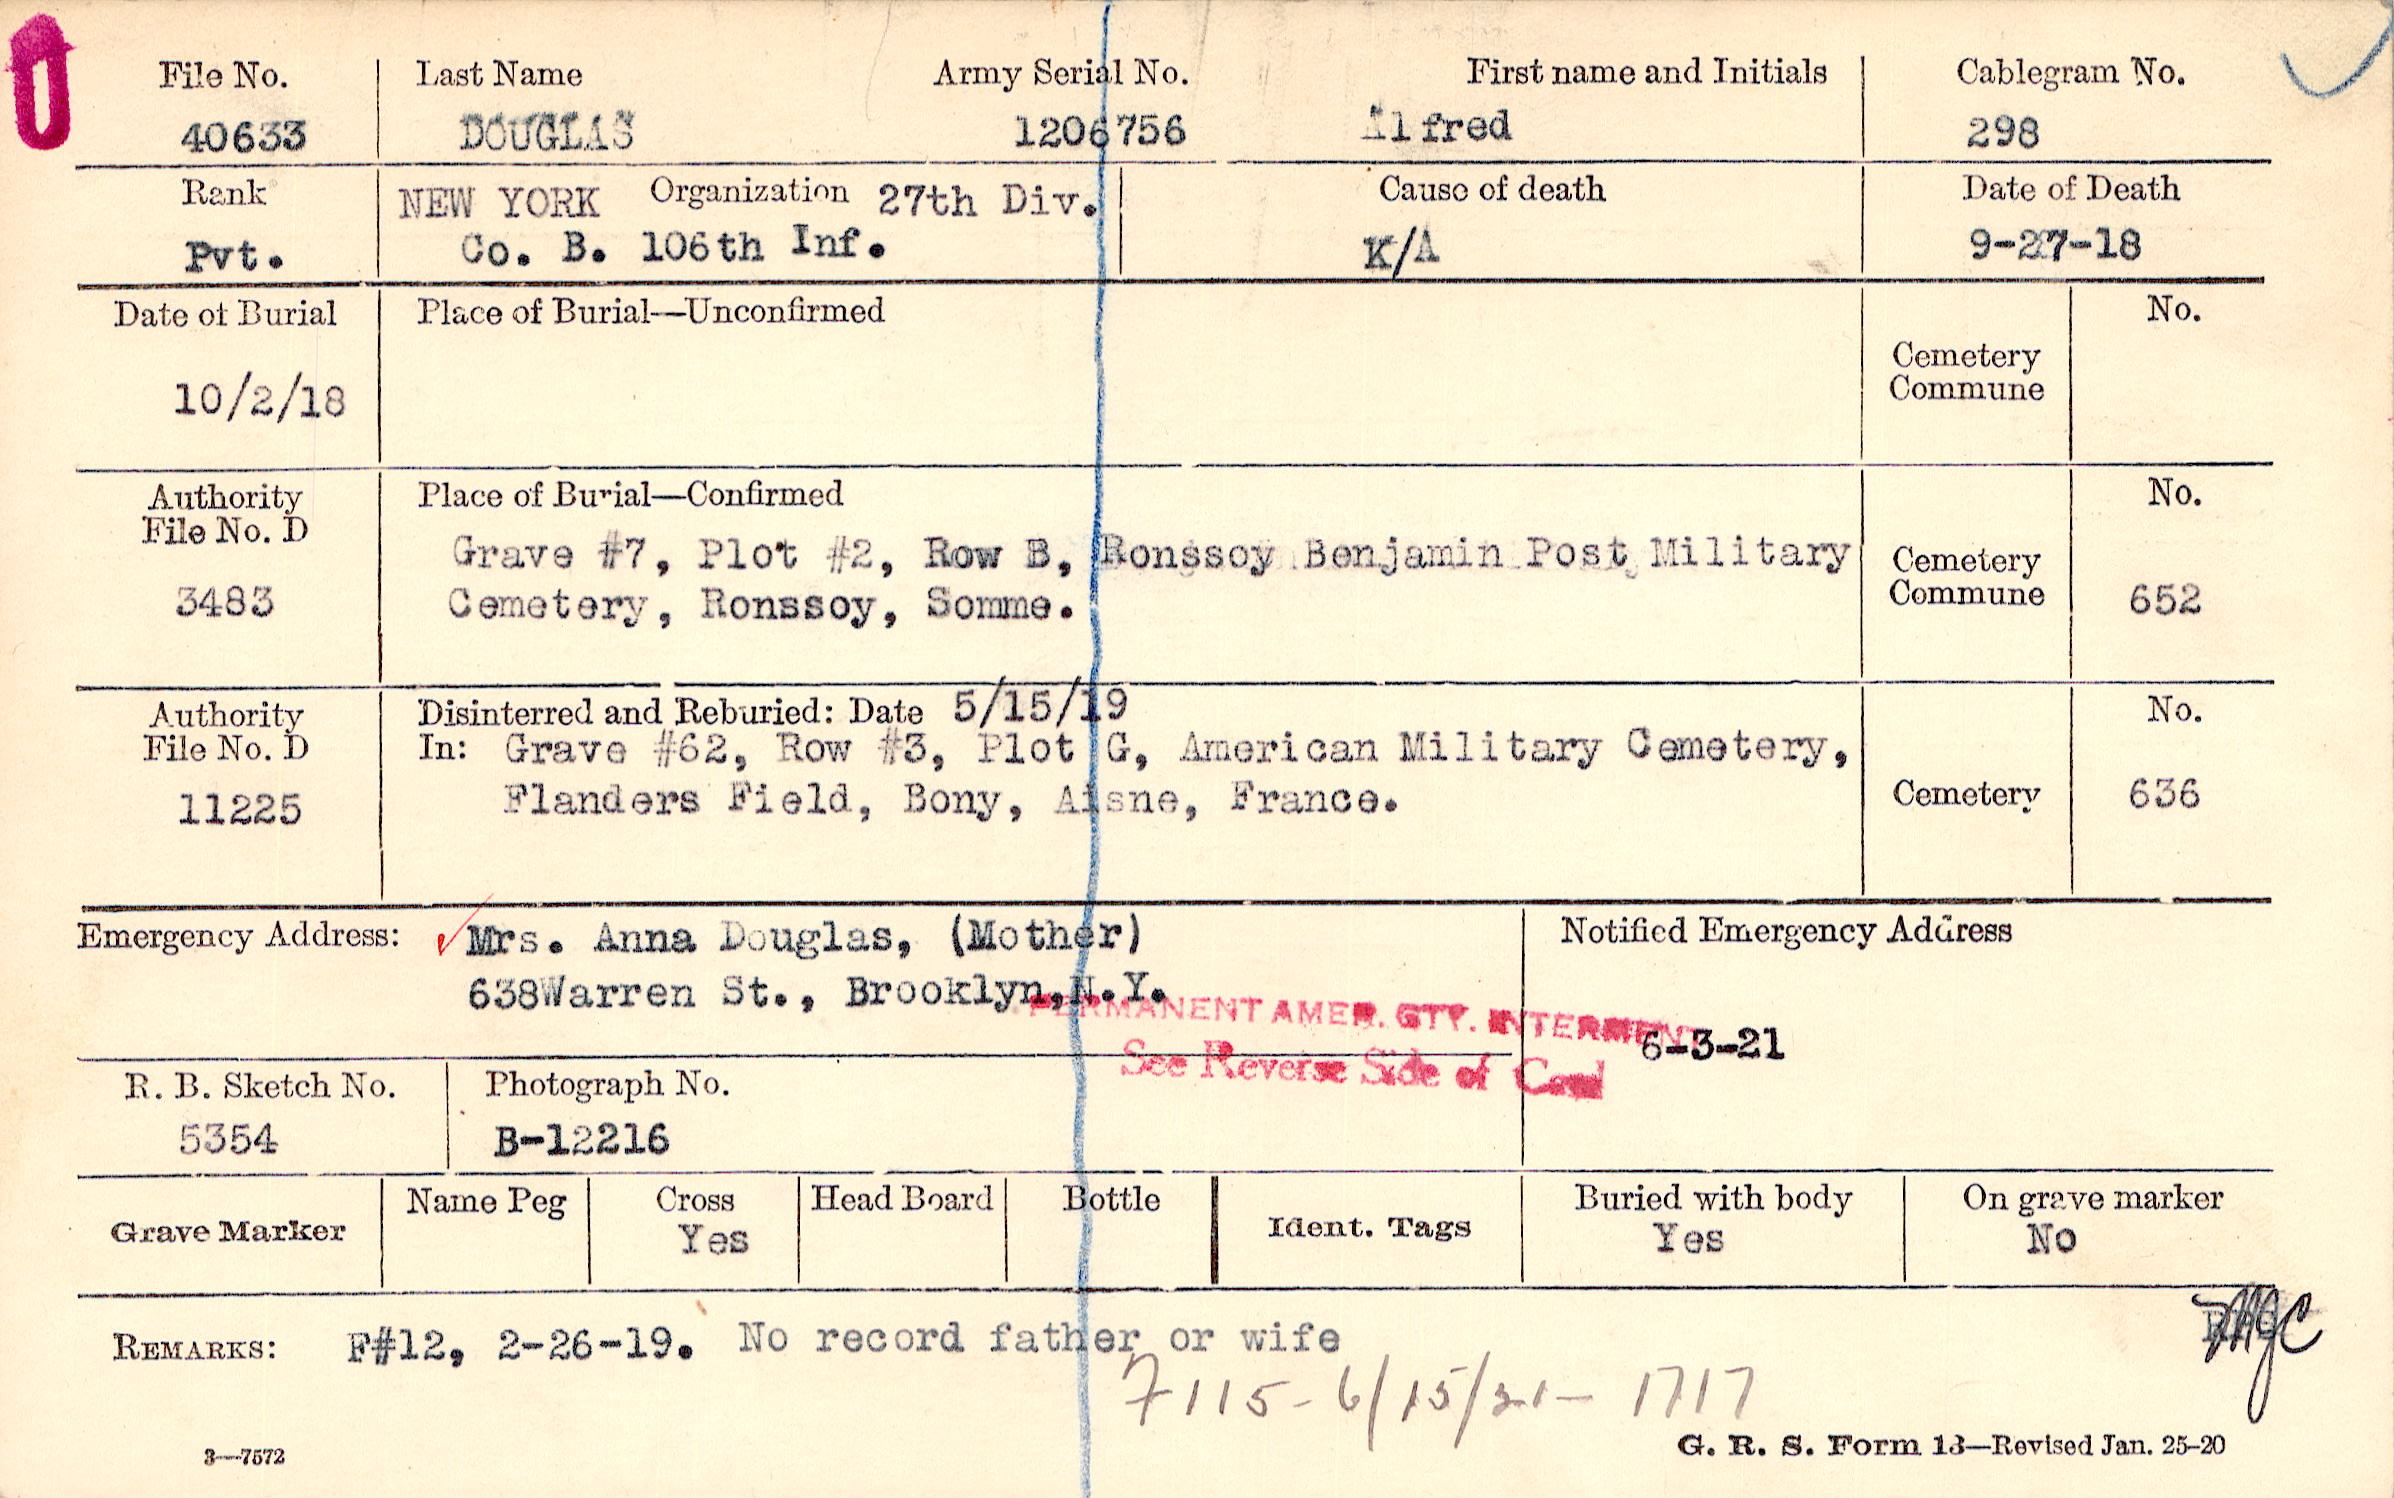 File No. Last Name Army Serial No. First name and Initials Cablegram No.
40633 DOUGLAS 1206756 Alfred 298
Rank NEW YORK Organization 27th Div. Cause of death Date of Death
Pvt. Co. B. 106th Inf. K/A 9-27-18
Date of Burial Place of Burial—Unconfirmed No.
10/2/18 Cemetery
Commune
Authority Place of Burial—Confirmed No.
File No. D
Grave #7, Plot #2, Row B, Ronssoy Benjamin Post Military Cemetery
3483 Cemetery, Ronssoy, Somme. Commune 652
Authority Disinterred and Reburied: Date 5/15/19 No.
File No. D In: Grave #62, Row #3, Plot G, American Military Cemetery,
11225 Flanders Field, Bony, Aisne, France. Cemetery 636
Emergency Address: Mrs. Anna Douglas, (Mother) Notified Emergency Address
638Warren St., Brooklyn,N.Y.
PERMANENT AMER. CTY. INTERMENT
6-3-21
See Reverse Side of Card
R. B. Sketch No. Photograph No.
5354 B-12216
Grave Marker Name Peg Cross Head Board Bottle Ident. Tags Buried with body On grave marker
Yes Yes No
REMARKS: F#12, 2-26-19. No record father or wife
7115-6/15/21-1717
3—7572 G. R. S. Form 13—Revised Jan. 25-20